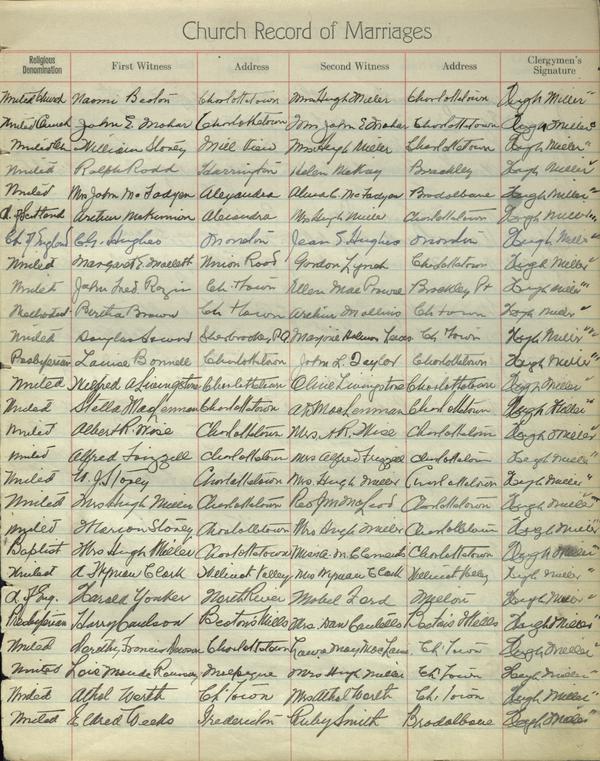 Church Record of Marriages
Religious Denomination First Witness Address Second Witness Address Clergymen's Signature
United Church Naomi Beaton Charlottetown Mrs Hugh Miller Charlottetown Hugh Miller
United Church John E. Mohar Charlottetown Mrs John E Mohar Charlottetown Hugh Miller
United Ch William Storey Mill View Mrs Hugh Miller Charlottetown Hugh Miller
United Ralph Rodd Harrington Helen McKay Brackley Hugh Miller
United Mrs John McFadyen Alexandra C. McFadyen Bradalbane Hugh Miller
Ch of Scotland Arthur McKinnon Alexandra Mrs Hugh Miller Charlottetown Hugh Miller
Ch of England Ch. Hughes Moncton Jean S Hughes Moncton Hugh Miller
United Margaret E. Union Road Gordon Lynch Charlottetown Hugh Miller
United John Fred Ch. Town Ellen Mac Brackley Pt Hugh Miller
Methodist Bertha Brown Ch Town Arthur Ch town Hugh Miller
United Douglas Sherbrooke PQ Marjorie Ch. Town Hugh Miller
Presbyterian Louise Bonnell Charlottetown John L. Taylor Charlottetown Hugh Miller
United Wilfred A Livingstone Charlottetown Olive Livingstone Charlottetown Hugh Miller
United Stella MacLennan Charlottetown MacLennan Charlottetown Hugh Miller
United Albert R. Wise Charlottetown Mrs. A R. Wise Charlottetown Hugh Miller
United Alfred Frizzell Charlottetown Mrs Alfred Frizzell Charlottetown Hugh Miller
United W. J Storey Charlottetown Mrs Hugh Miller Charlottetown Hugh Miller
United Mrs Hugh Miller Charlottetown McLeod Charlottetown Hugh Miller
United Marion Storey Charlottetown Mrs Hugh Miller Charlottetown Hugh Miller
Baptist Mrs Hugh Miller Charlottetown Clements Charlottetown Hugh Miller
United A Wyman Clark Valley Mrs Wyman Clark Valley Hugh Miller
Ch of Eng. Harold Yonker North River Mabel Ford Hugh Miller
Presbyterian Harry Beatons Mills Mrs. Dan Beatons Mills Hugh Miller
United Dorothy Francis Charlottetown Laura May Ch. Town Hugh Miller
United Lois Maude Ramsay Mrs Hugh Miller Ch. Town Hugh Miller
United Athol Werth Ch. Town Mrs Athol Werth Ch. Town Hugh Miller
United Eldred Weeks Fredericton Ruby Smith Bradalbane Hugh Miller